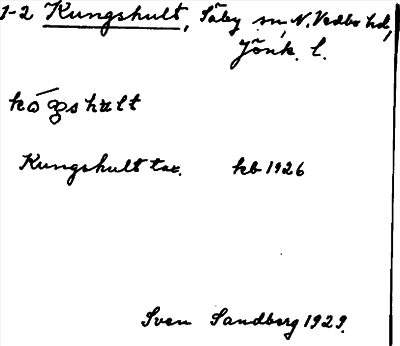 1-2 Kungshult, Säby sn, N. Vedbo hd,
Jönk. l.
kōg̥shult
Kungshult tax. kb 1926
Sven Sandberg 1929.